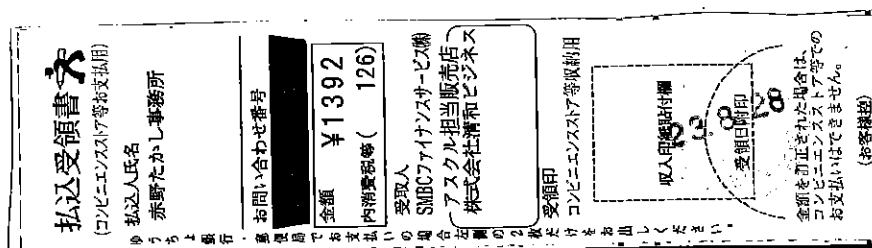 払込受領書
(コンビニエンスストア等お支払用)
払込人氏名
赤野たかし事務所
お問い合わせ番号
金額 ¥1392
内消費税等( 126)
受取人
SMBCファイナンスサービス㈱
アスクル担当販売店
株式会社清和ビジネス
受領印
コンビニエンスストア等収納用
収入印紙貼付欄
受領日附印
金額を訂正された場合は、
コンビニエンスストア等での
お支払いはできません。
(お客様控)
ゆうちょ銀行・郵便局でお支払いの場合左側の2枚だけをお出しください。